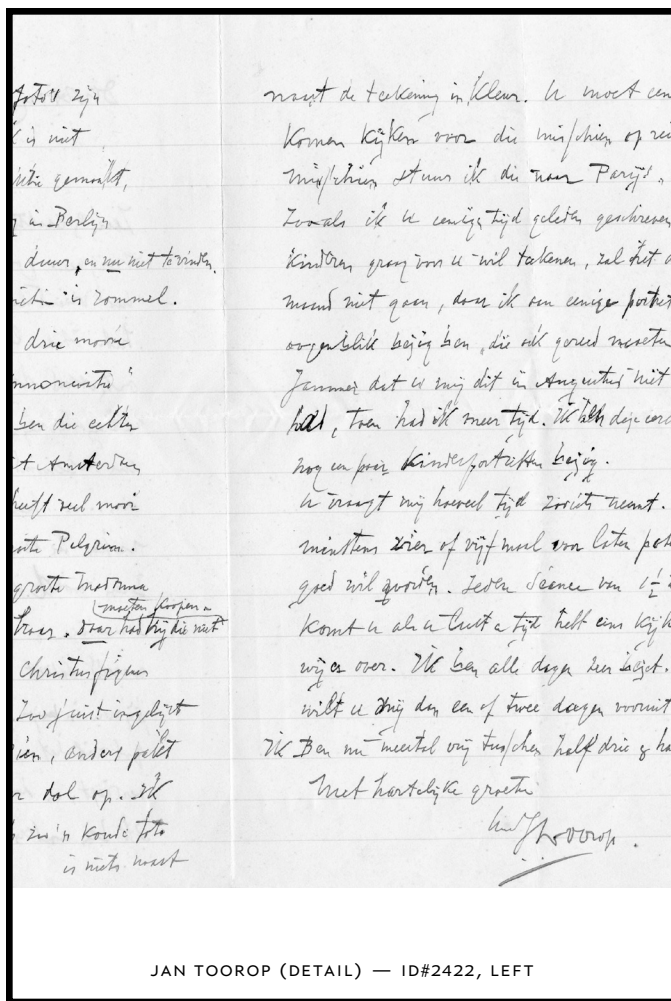 foto's zijn
is niet
gemaakt,
in Berlijn
duur, en nu niet te vinden.
is rommel.
drie mooie
ben die echten
Amsterdam
heeft veel moois
Pelgrim.
groote Madonna
moeten koopen
daar had hij die niet
Christusfiguur
Zoo juist ingelijst
anders pakt
dol op. Ik
zoo'n koude foto
is niets naast
naast de teekening in kleur. U moet een
komen kijken voor die misschien op rei
misschien stuur ik die naar Parijs.
Zooals ik u eenige tijd geleden geschreven
kinderen graag voor u wil teekenen, zal het d
maand niet gaan, daar ik aan eenige portret
oogenblik bezig ben, die ook gereed moeten
Jammer dat u mij dit in Augustus niet
had, toen had ik meer tijd. Ik ben deze
nog een paar kinderportretten bezig.
U vraagt mij hoeveel tijd zooiets neemt.
minstens vier of vijf maal laten
goed wil worden. Iedere Séance van 1½
Komt u als u lust en tijd hebt eens kijk
wij es over. Ik ben alle dagen zeer bezet.
wilt u mij dan een of twee dagen vooruit
Ik Ben nu meestal vrij tusschen half drie &
Met hartelijke groeten
JThToorop.
JAN TOOROP (DETAIL) — ID#2422, LEFT